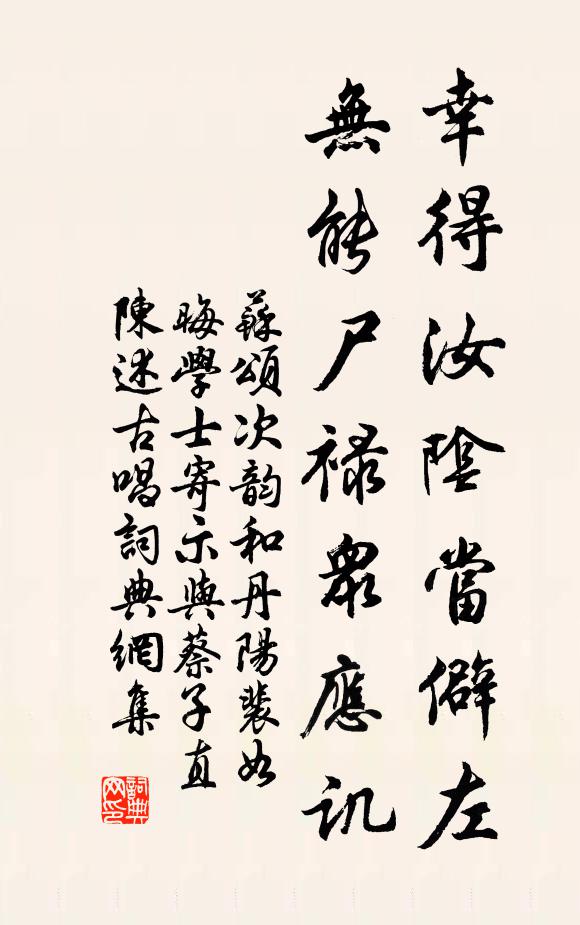 幸得汝陰當僻左
無能尸禄衆應訊
蘇頌次韵和丹陽裴如
晦學士寄示與蔡子直
陳述古唱詞典網集
詞典網印